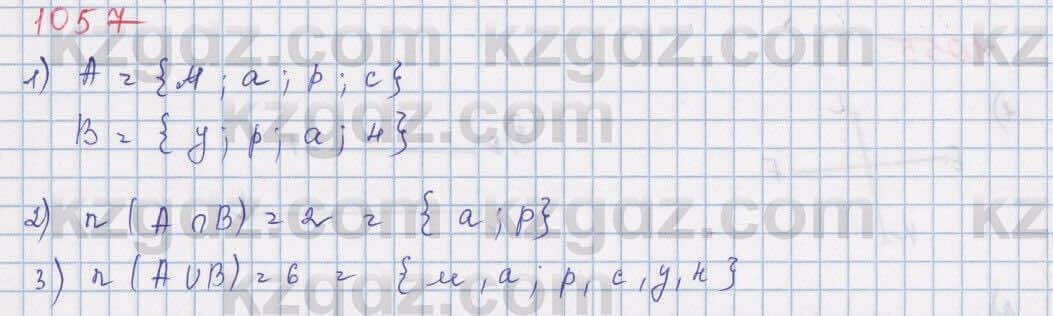 1057
kzgdz.com kzgdz.com kz
1) A = {м; а; р; с}
kzgdz.com
B = {у; р; а; н}
2) n (A∩B) = 2 = {а; р}
kzgdz.com kzgdz.com kz
3) n (A∪B) = 6 = {м, а; р, с, у, н}
kzgdz.com